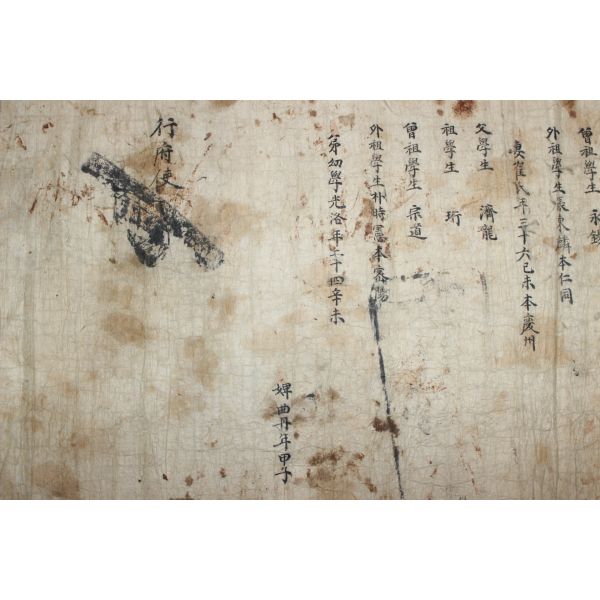 曾祖學生 永錢
外祖學生 東麟本仁同
妻崔氏年三十六己未本慶州
父學生 濟龍
祖學生 珩
曾祖學生 宗道
外祖學生朴時憲本密陽
弟幼學光洛年二十四辛未
婢曲丹年甲子
行府使